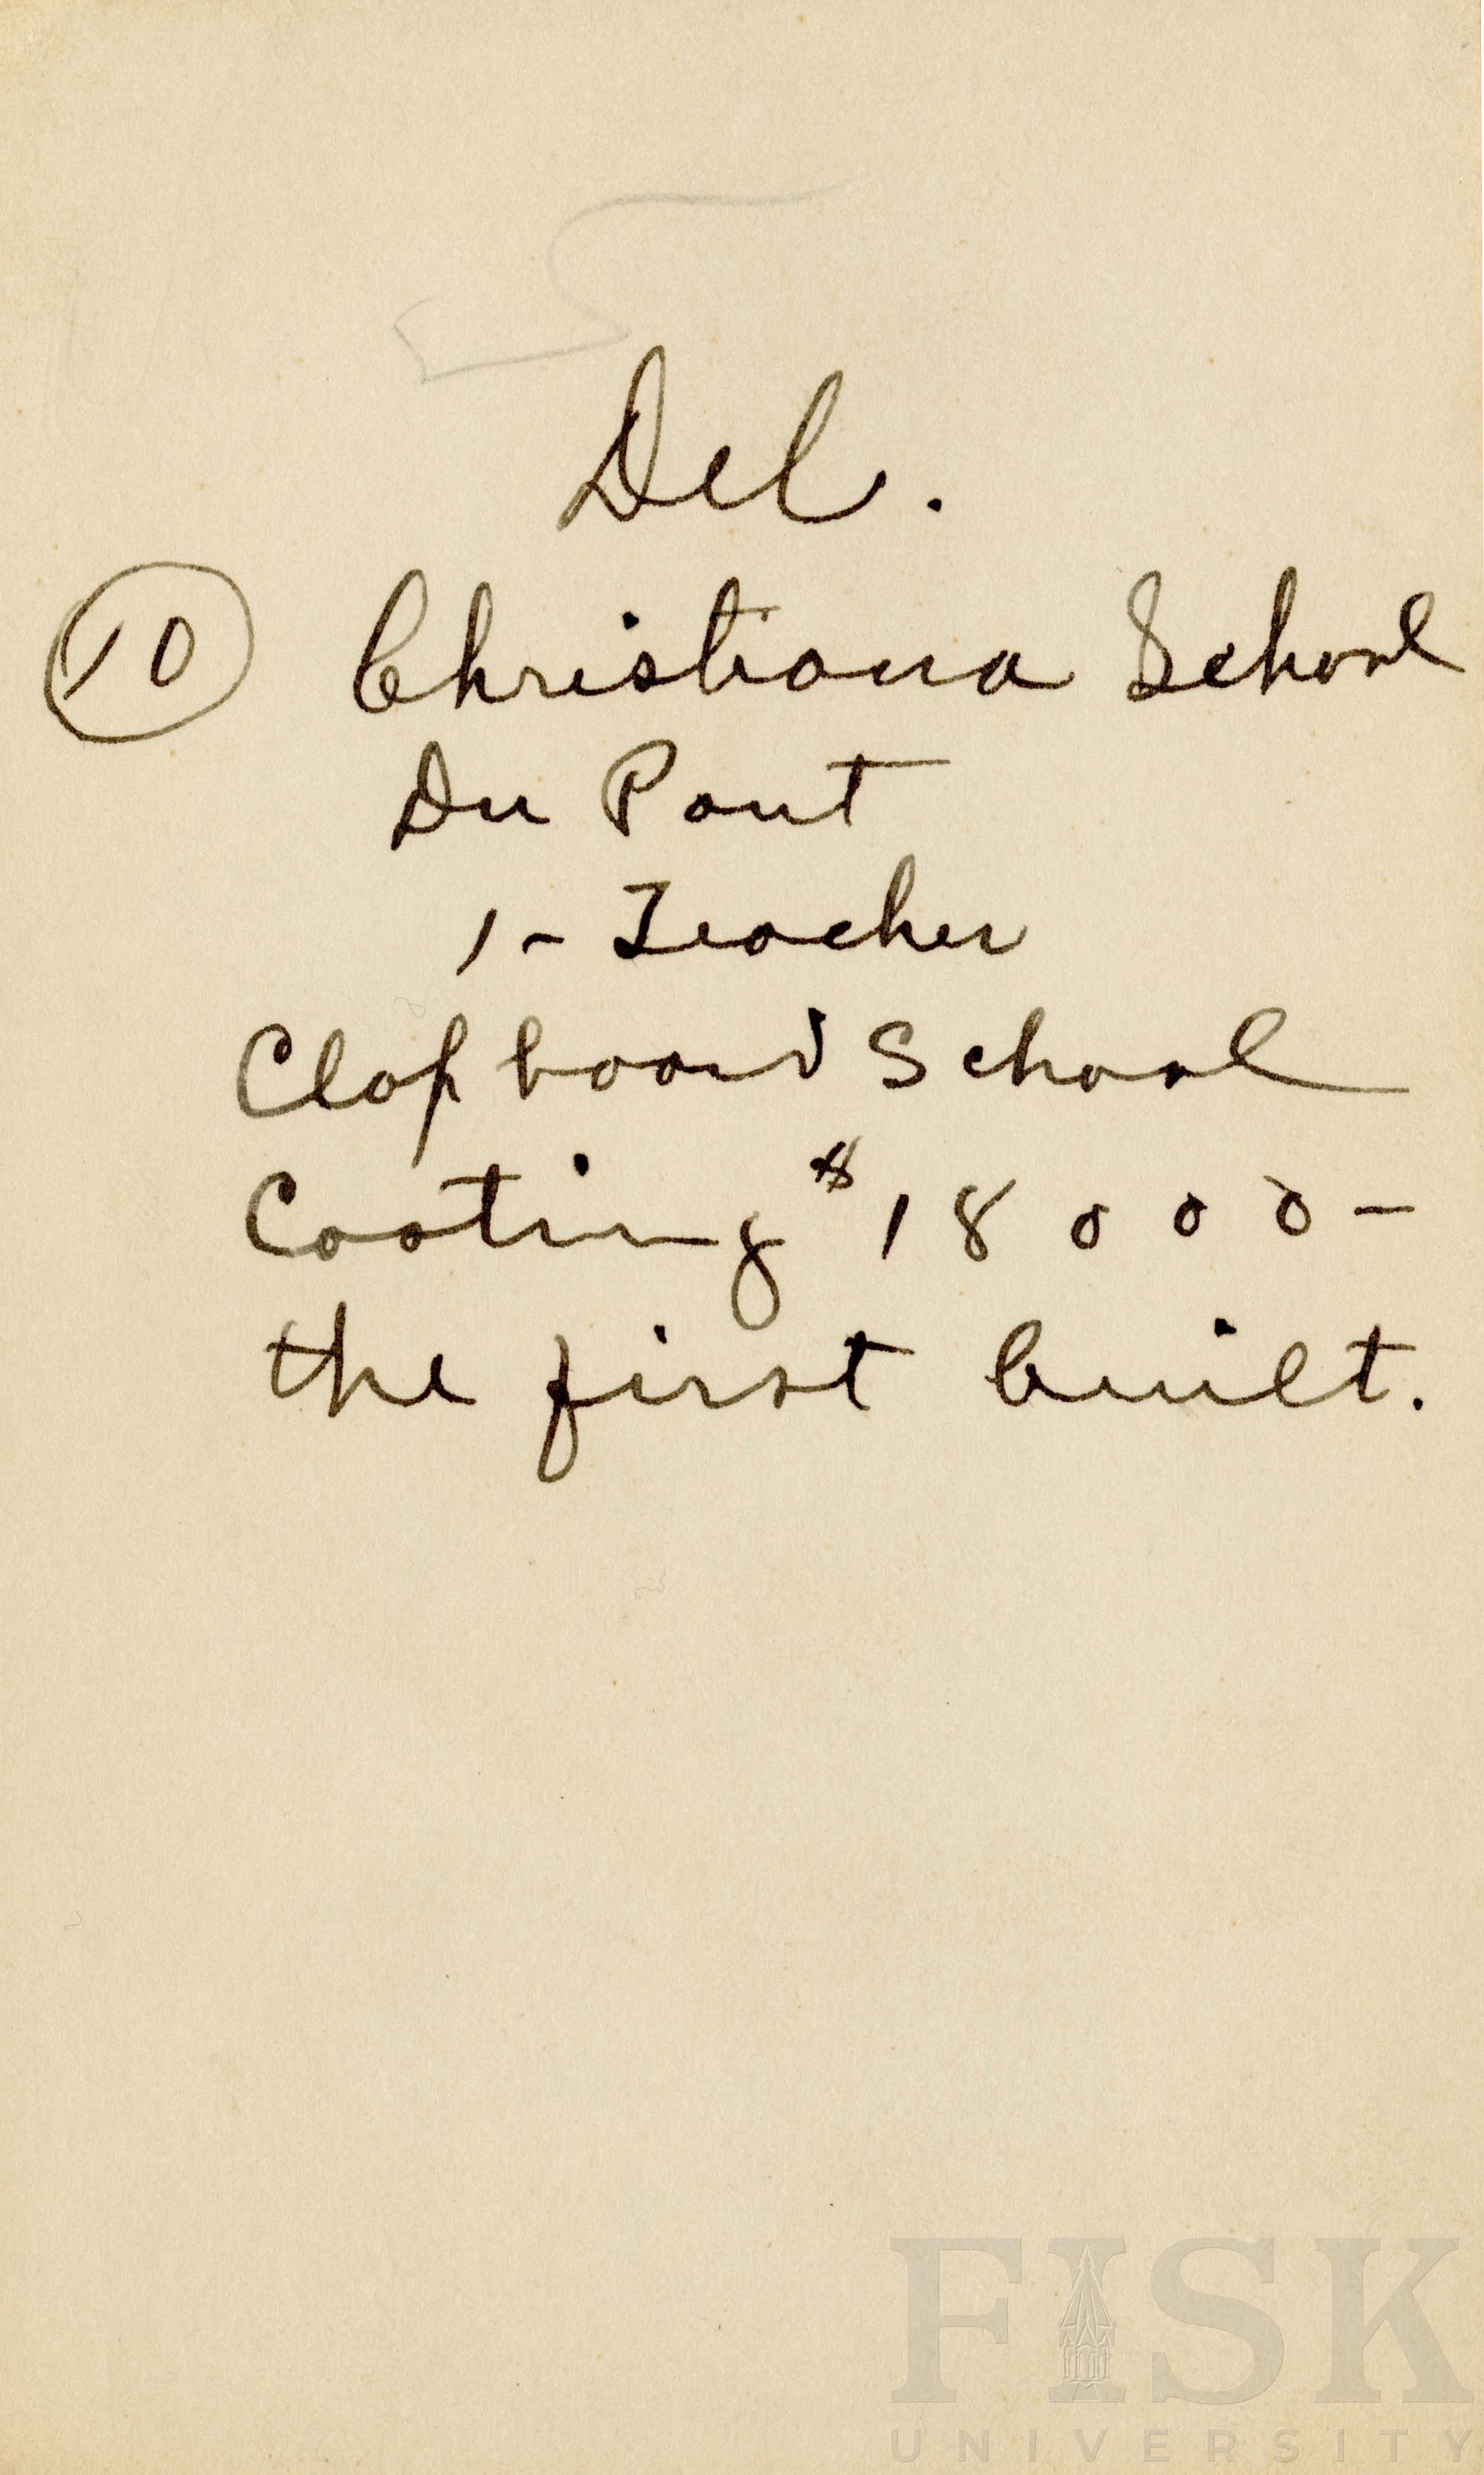 Del.
10 Christiana School
Du Pont
1 - Teacher
Clapboard School
Costing $18000-
the first built.
FISK
UNIVERSITY